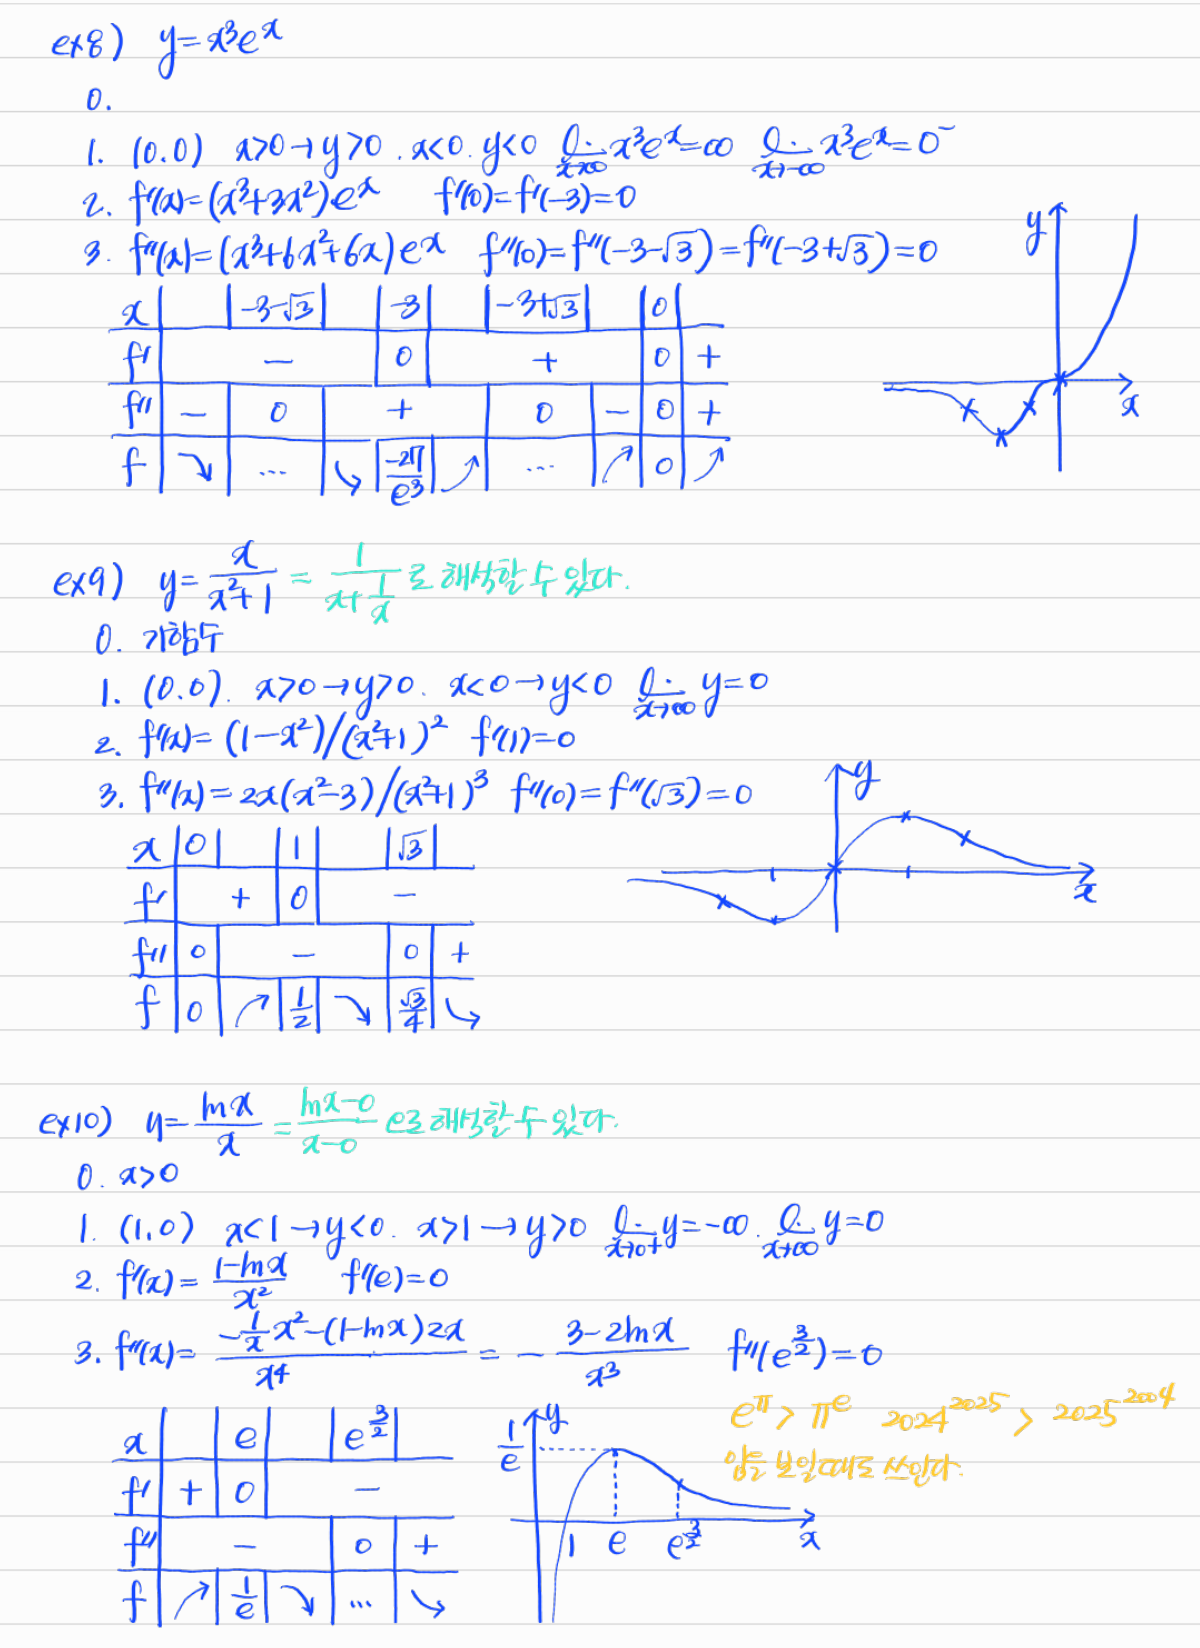 ex8) y=x³eˣ
0.
1. (0.0) x>0→y>0. x<0. y<0 lim_{x→∞} x³eˣ=∞ lim_{x→-∞} x³eˣ=0⁻
2. f'(x)=(x³+3x²)eˣ f'(0)=f'(-3)=0
3. f''(x)=(x³+6x²+6x)eˣ f''(0)=f''(-3-√3)=f''(-3+√3)=0
y
x
x | | -3-√3 | | -3 | | -3+√3 | | 0 |
f' | - | 0 | + | 0 | +
f'' | - | 0 | + | 0 | - | 0 | +
f | ↘ | ... | ↘ | -27/e³ | ↗ | ... | ↗ | 0 | ↗
ex9) y= x/(x²+1) = 1/(x+1/x) 로 해석할 수 있다.
0. 기함수
1. (0.0). x>0→y>0. x<0→y<0 lim_{x→∞} y=0
2. f'(x)=(1-x²)/(x²+1)² f'(1)=0
3. f''(x)=2x(x²-3)/(x²+1)³ f''(0)=f''(√3)=0
y
x
x | 0 | | 1 | | √3 |
f' | + | 0 | -
f'' | 0 | - | 0 | +
f | 0 | ↗ | 1/2 | ↘ | √3/4 | ↘
ex10) y= lnx/x = (lnx-0)/(x-0) 으로 해석할 수 있다.
0. x>0
1. (1,0) x<1→y<0. x>1→y>0 lim_{x→0+} y=-∞. lim_{x→∞} y=0
2. f'(x)= (1-lnx)/x² f'(e)=0
3. f''(x)= (-1/x x²-(1-lnx)2x)/x⁴ = - (3-2lnx)/x³ f''(e^{3/2})=0
e^π > π^e 2024^2025 > 2025^2004
임을 보일때도 쓰인다.
y
1/e
1 e e^{3/2} x
x | | e | | e^{3/2} |
f' | + | 0 | -
f'' | - | 0 | +
f | ↗ | 1/e | ↘ | ... | ↘